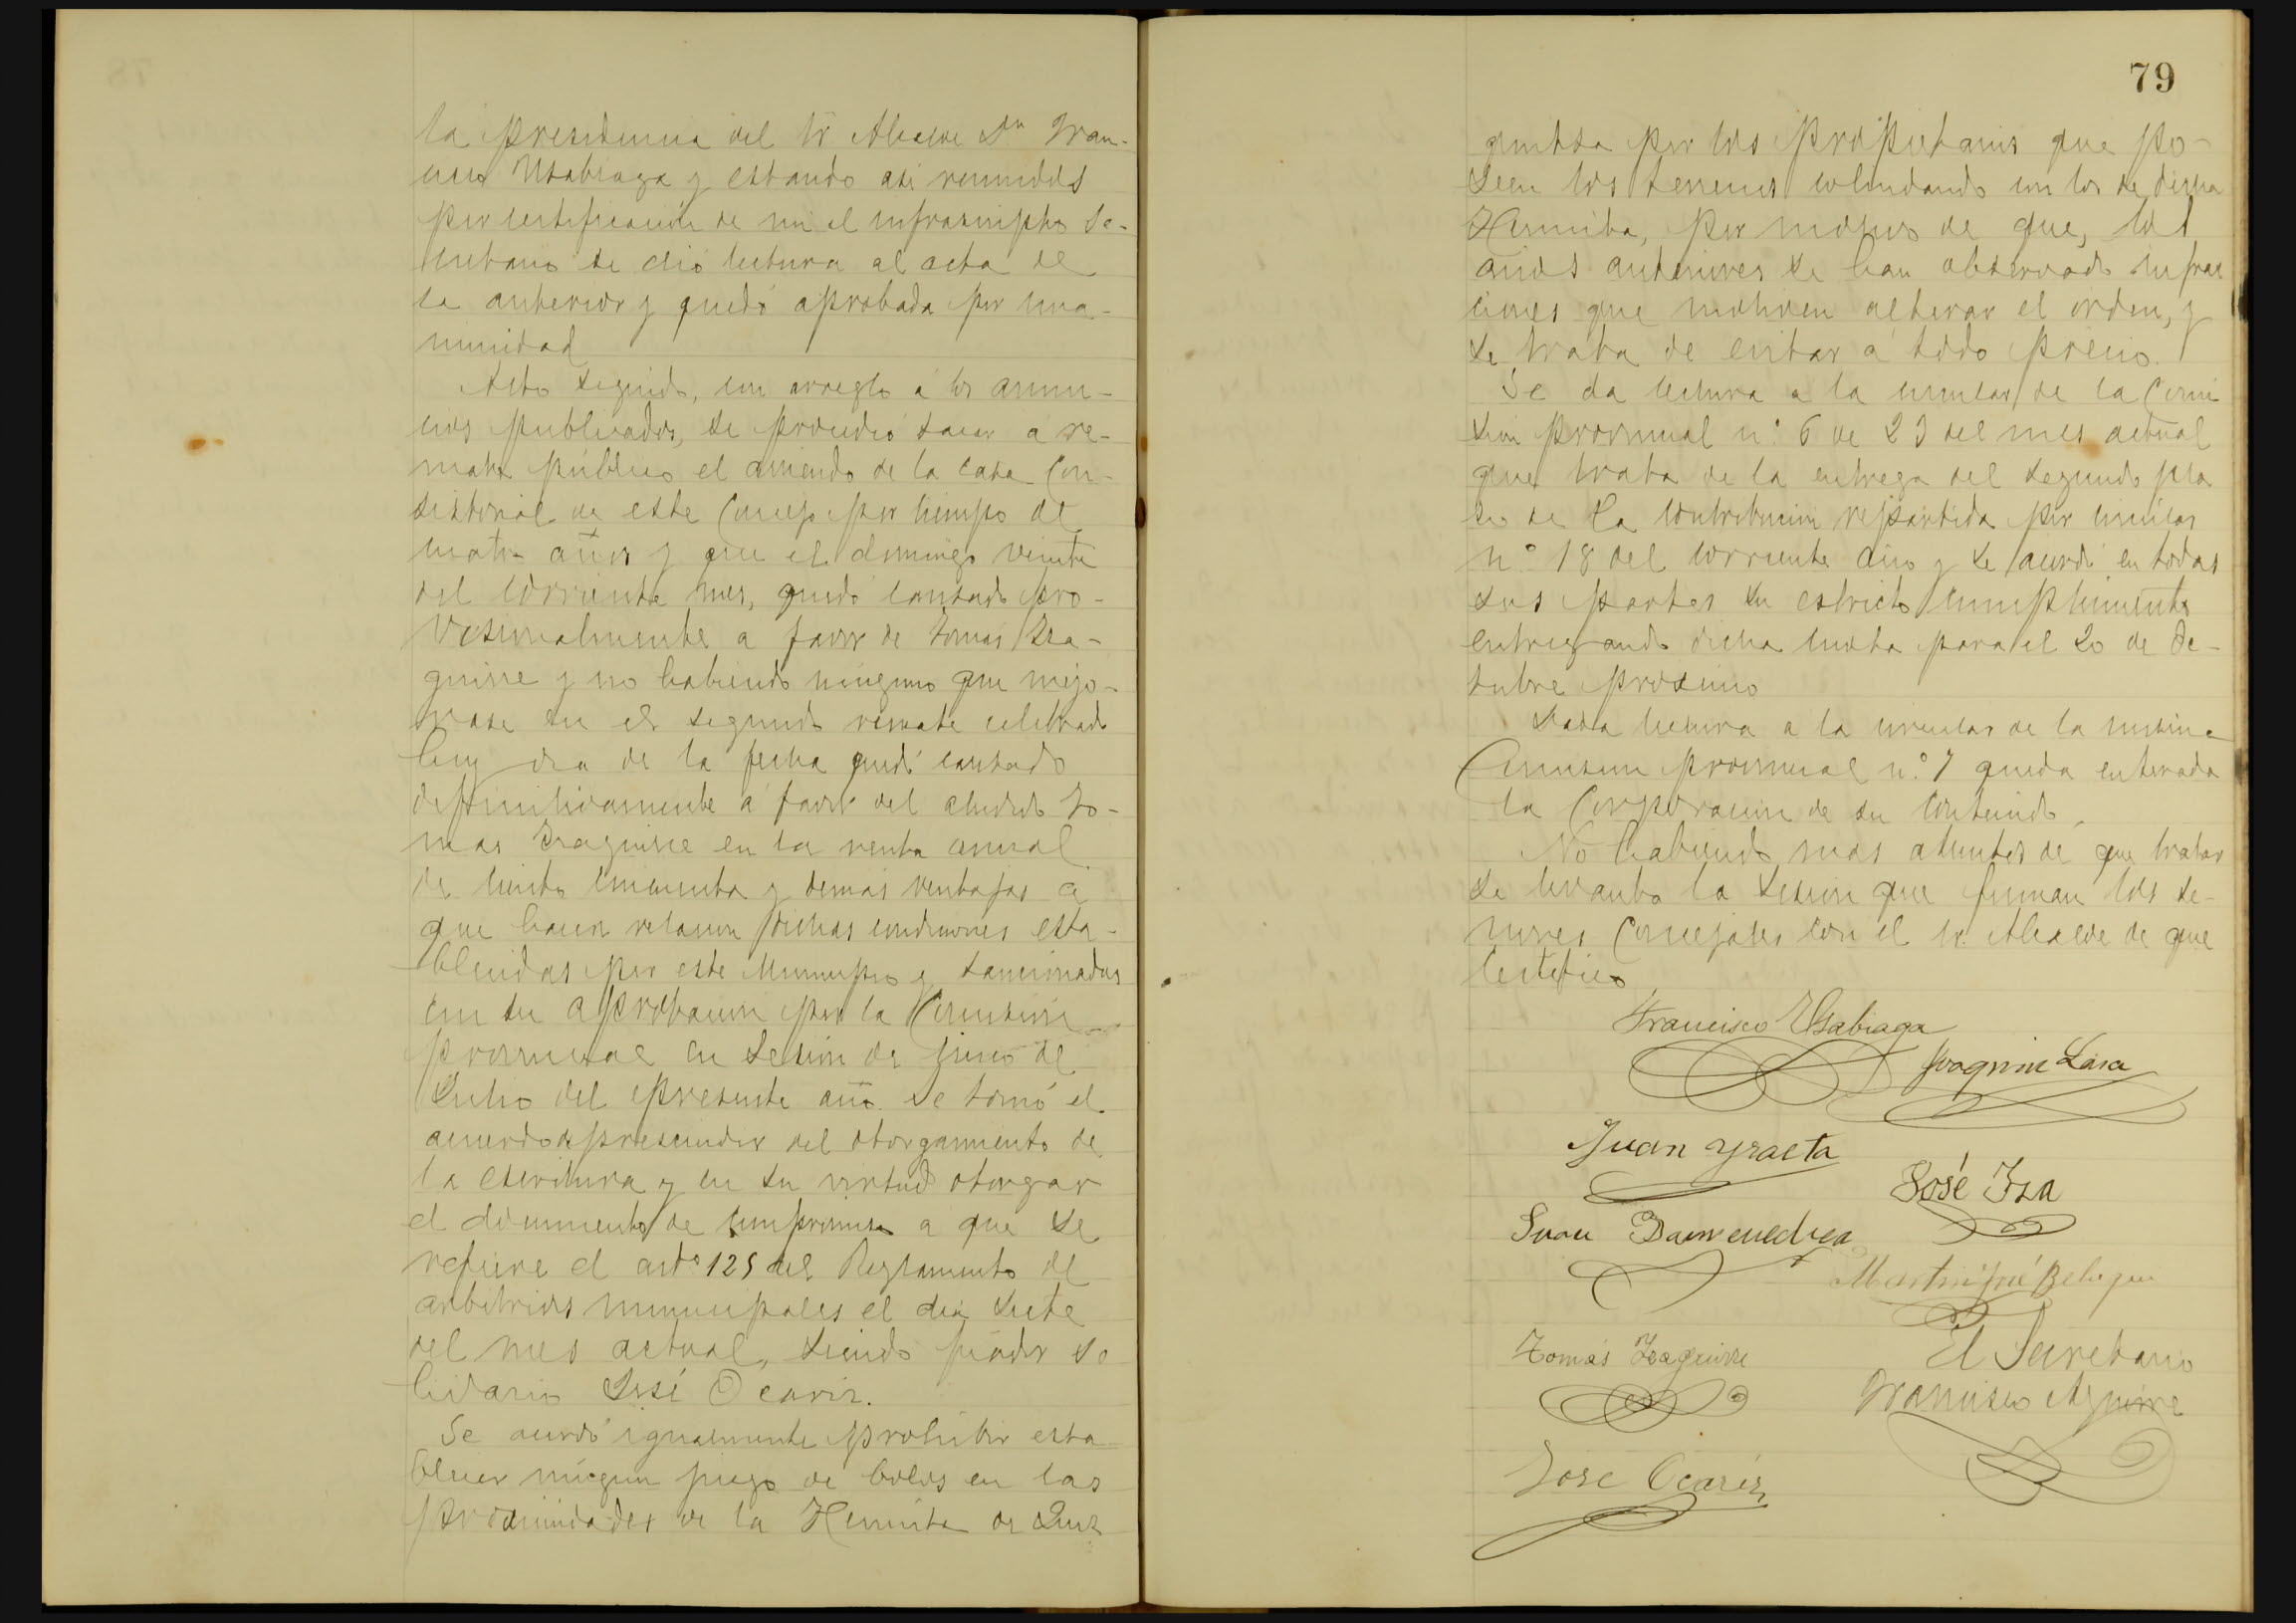 la presidencia del Sr Alcalde Dn Fran-
cisco Usabiaga y estando asi reunidos
por certificación de mi el infrascripto Se-
cretario se dió lectura al acta de
la anterior y quedó aprobada por una-
nimidad
Acto seguido, con arreglo á los anun-
cios publicados, se procedió sacar a re-
mate público el arriendo de la casa Con-
sistorial de este Concejo por tiempo de
cuatro años y que el domingo veinte
del corriente mes, quedó causado pro-
visionalmente a favor de Tomás Iza-
guirre y no habiendo ninguno que mejo-
rase en el segundo remate celebrado
hoy dia de la fecha quedó causado
definitivamente á favor del aludido To-
mas Izaguirre en la renta anual
de ciento cincuenta y demás ventajas á
que hacen relacion dichas condiciones esta-
blecidas por este Municipio y sancionadas
con su aprobacion por la Comision
provincial en sesion de cinco de
Julio del presente año. Se tomó el
acuerdo de prescindir del otorgamiento de
la escritura y en su virtud otorgar
el documento de compromiso a que se
refiere el arto 125 del Reglamento de
arbitrios municipales el dia siete
del mes actual, siendo fiador so
lidario José Ocariz.
Se acordó igualmente prohibir esta
blecer ningun juego de bolos en las
proximidades de la Hermita de
79
por los propietarios que po-
seen los terrenos colindando con los de dicha
Hermita, por motivo de que, los
años anteriores se han observado infrac
ciones que motiven alterar el orden, y
se trata de evitar á todo precio.
Se da lectura a la circular de la Comi
sion provincial n.º 6 de 23 del mes actual
que trata de la entrega del segundo pla
zo de la contribucion repartida por circular
n.º 18 del corriente año y se acordó en todas
sus partes su estricto cumplimiento
entregando dicha cuota para el 20 de Oc-
tubre proximo
Dada lectura a la circular de la misma
Comision provincial n.º 7 queda enterada
la Corporacion de su contenido.
No habiendo mas asuntos de que tratar
se levanto la sesion que firman los se-
ñores Concejales con el Sr. Alcalde de que
certifico
Francisco Usabiaga
Joaquin Lasa
Juan Yraeta
José Iza
Juan Barrenechea
Martin José
Tomás Izaguirre
El Secretario
Francisco Aguirre
Jose Ocariz